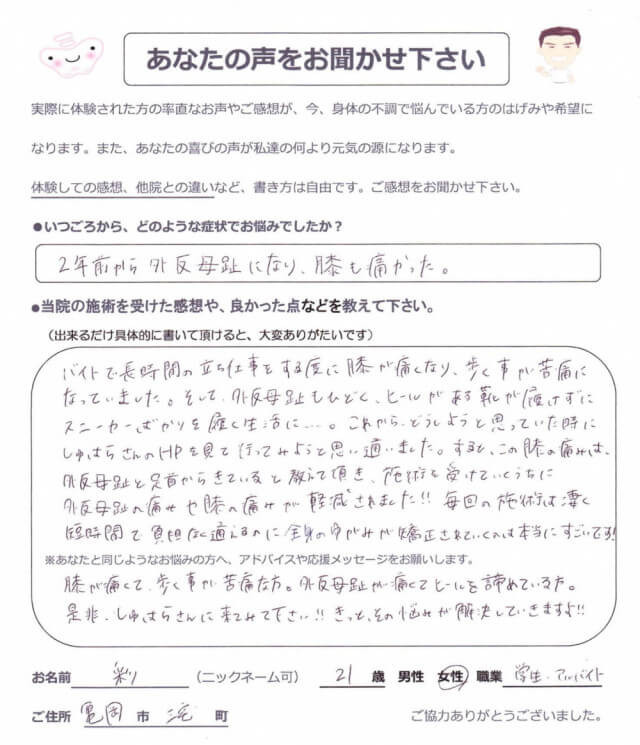 あなたの声をお聞かせ下さい
実際に体験された方の率直なお声やご感想が、今、身体の不調で悩んでいる方のはげみや希望に
なります。また、あなたの喜びの声が私達の何より元気の源になります。
体験しての感想、他院との違いなど、書き方は自由です。ご感想をお聞かせ下さい。
●いつごろから、どのような症状でお悩みでしたか？
2年前から外反母趾になり、膝も痛かった。
●当院の施術を受けた感想や、良かった点などを教えて下さい。
（出来るだけ具体的に書いて頂けると、大変ありがたいです）
バイトで長時間の立ち仕事をする度に膝が痛くなり、歩く事が苦痛に
なっていました。そして、外反母趾もひどく、ヒールがある靴が履けずに
スニーカーばかりを履く生活に…。これから、どうしようと思っていた時に
しゅはらさんのHPを見て行ってみようと思い通いました。すると、この膝の痛みは、
外反母趾と足首からきていると教えて頂き、施術を受けていくうちに
外反母趾の痛みや膝の痛みが軽減されました!! 毎回の施術は凄く
短時間で負担なく通えるのに全身のゆがみが矯正されていくのは本当にすごいです!
※あなたと同じようなお悩みの方へ、アドバイスや応援メッセージをお願いします。
膝が痛くて、歩く事が苦痛な方。外反母趾が痛くてヒールを諦めている方。
是非、しゅはらさんに来てみて下さい!! きっと、その悩みが解決していきますよ!!
お名前 彩 （ニックネーム可） 21 歳 男性 女性 職業 学生・アルバイト
ご住所 亀岡 市 町 ご協力ありがとうございました。